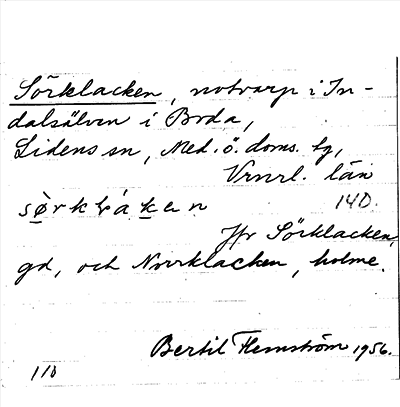 Sörklacken, notvarp i In-
dalsälven i Boda,
Lidens sn, Med. ö. doms. tg,
Vrnrl. län
140.
Jfr Sörklacken,
gd, och Norrklacken, holme.
Bertil Flemström 1956.
110